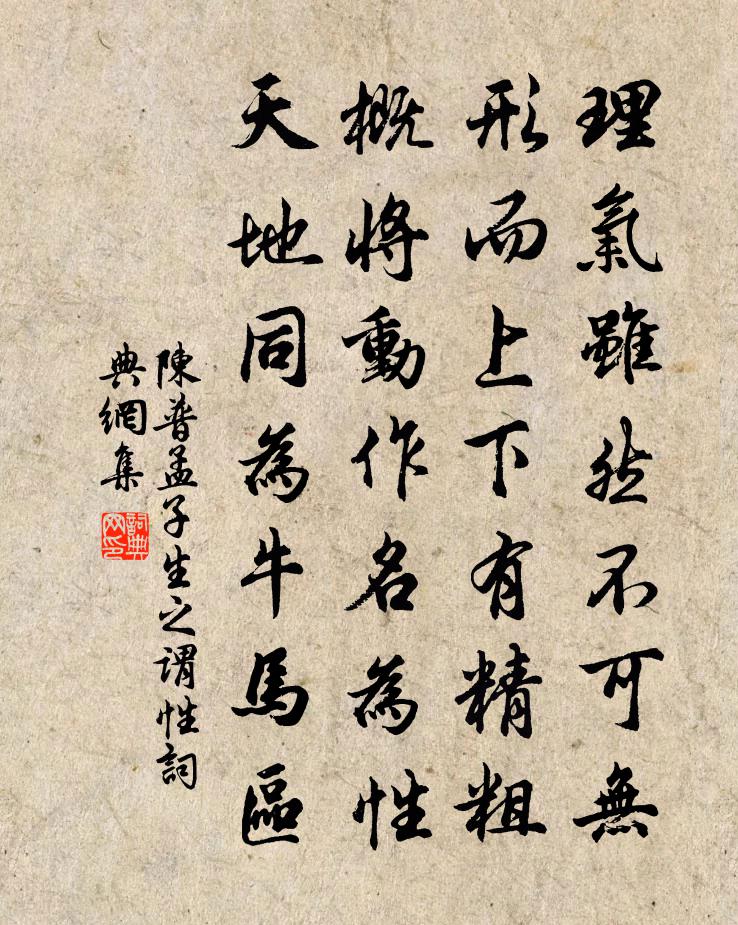 理氣雖然不可無
形而上下有精粗
概將動作名為性
天地同為牛馬區
陳普孟子生之謂性詞
典網集
詞典
网印